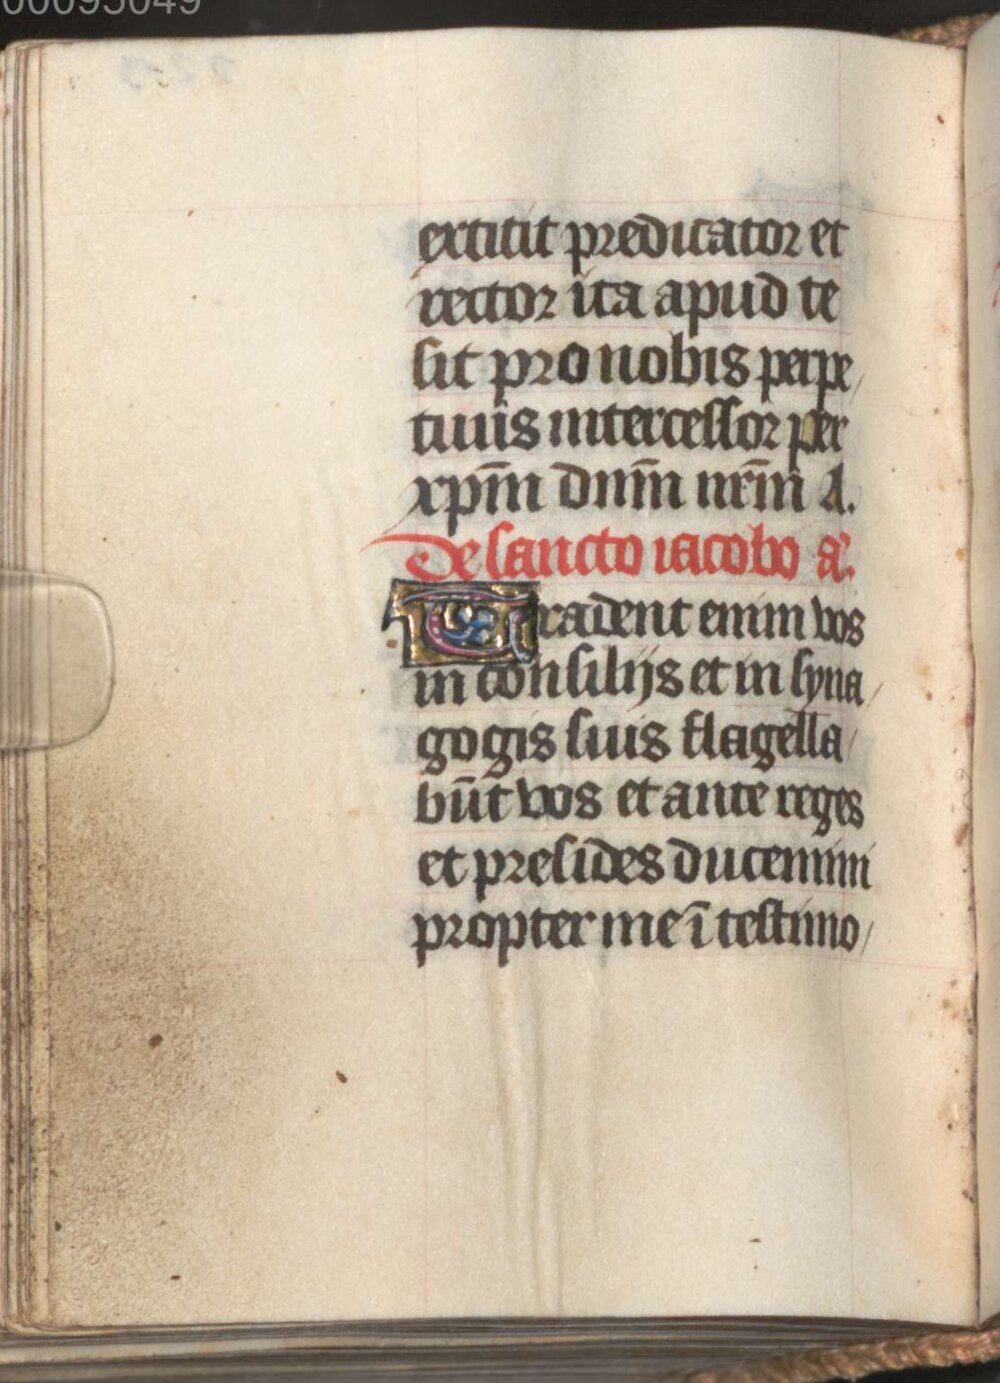 00095049
extitit predicator et
rector ita apud te
sit pro nobis perpe/
tuus intercessor per
xp̄m dnm̄ nrm̄ A.
De sancto iacobo a.
Tradent enim vos
in consilijs et in syna/
gogis suis flagella/
būt vos et ante reges
et presides ducemini
propter me ī testimo/